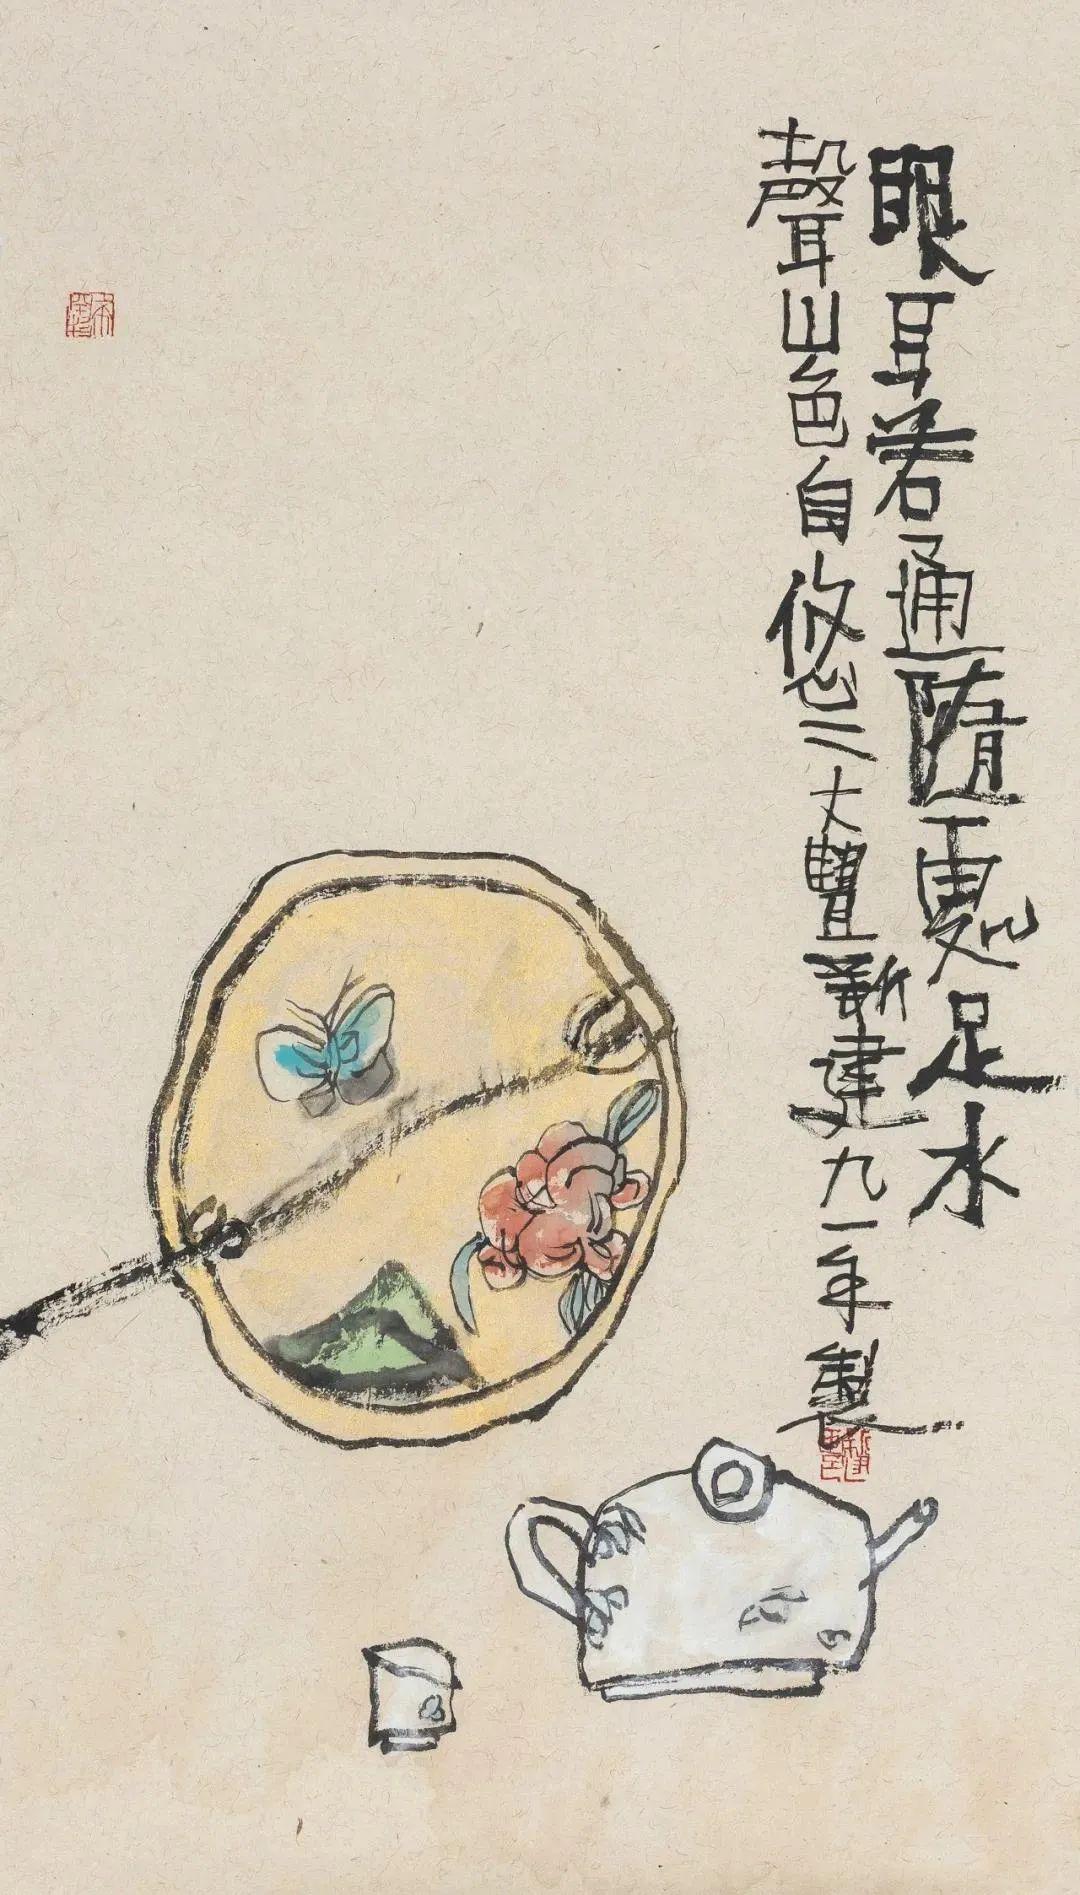 眼耳若通隨處足水
聲山色自悠〻大豐新建九一年製